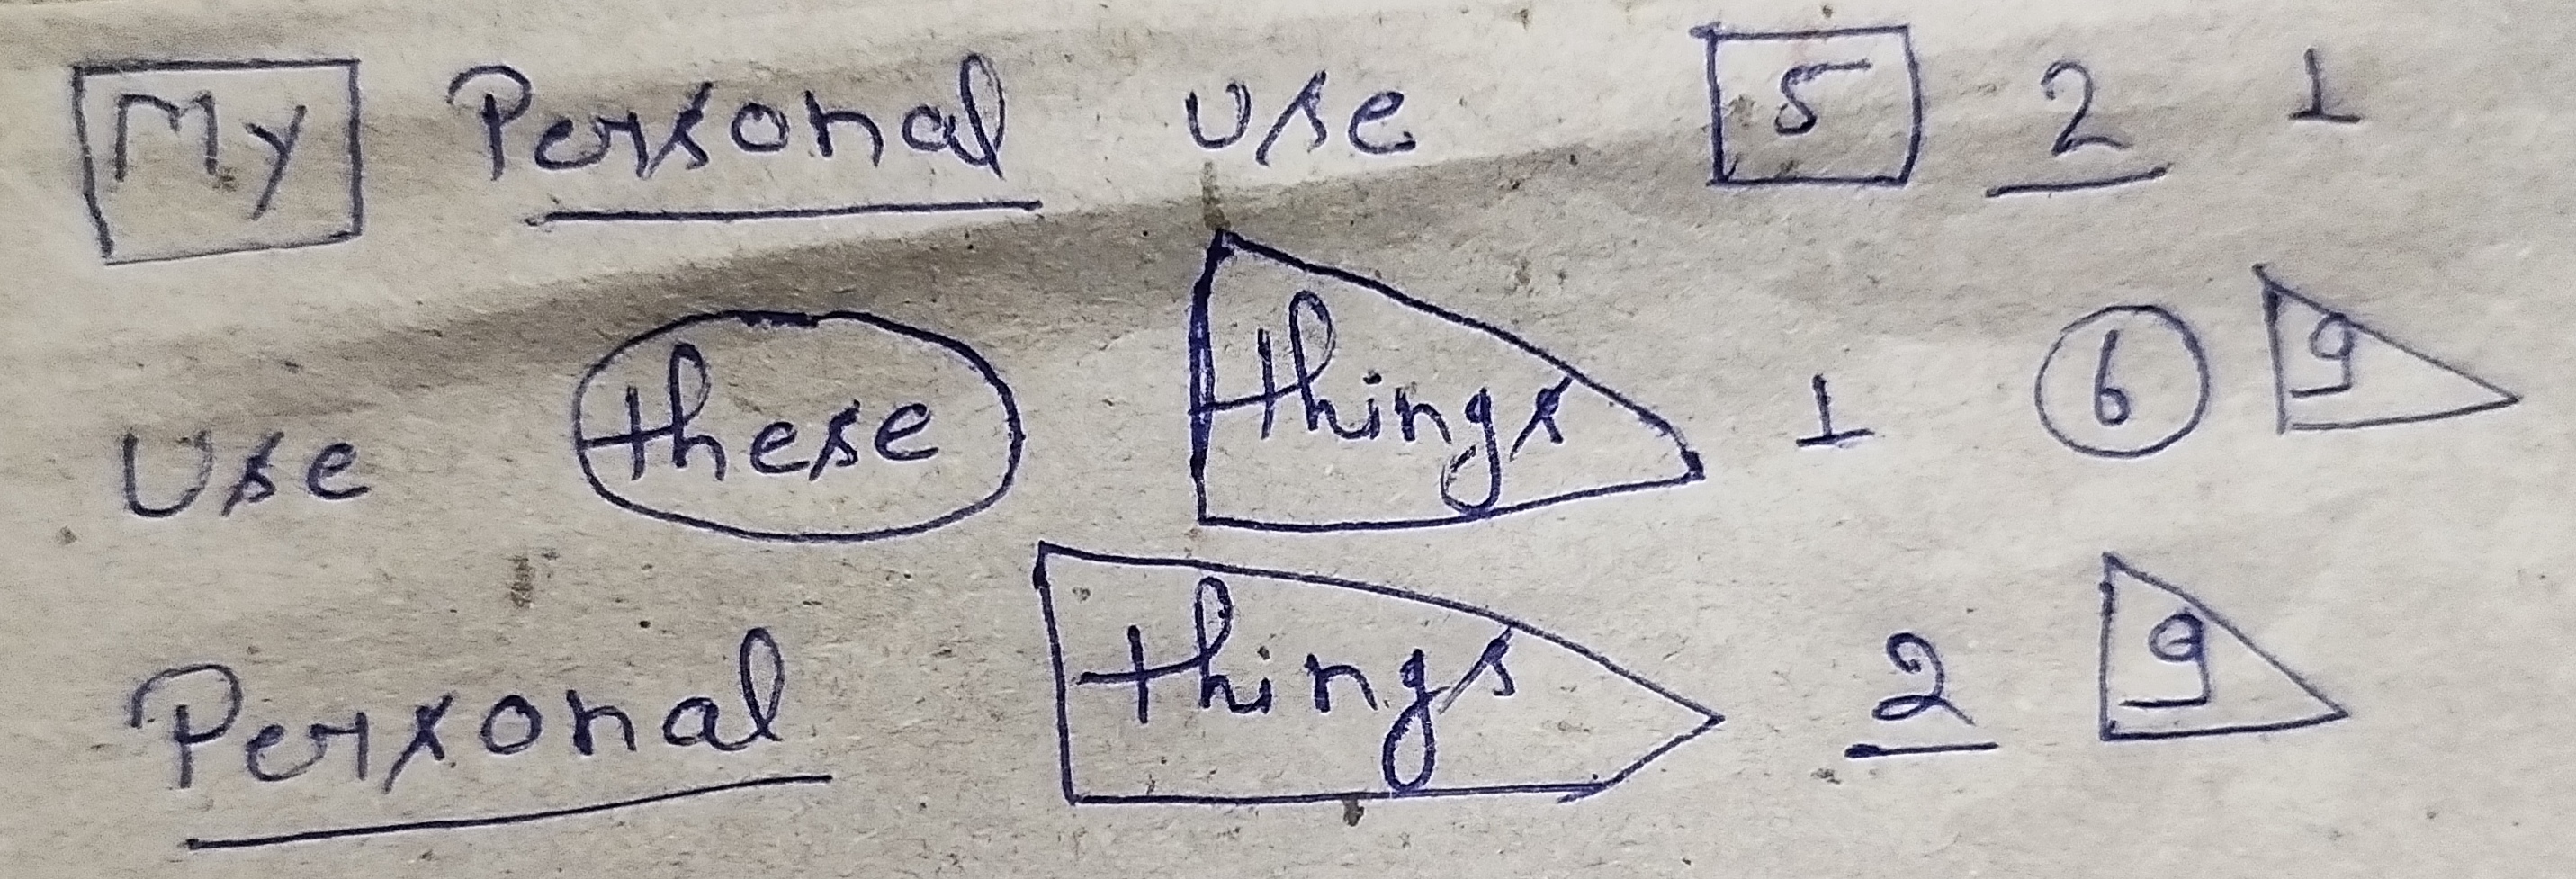 My Personal use 5 2 1
Use these things 1 6 9
Personal things 2 9